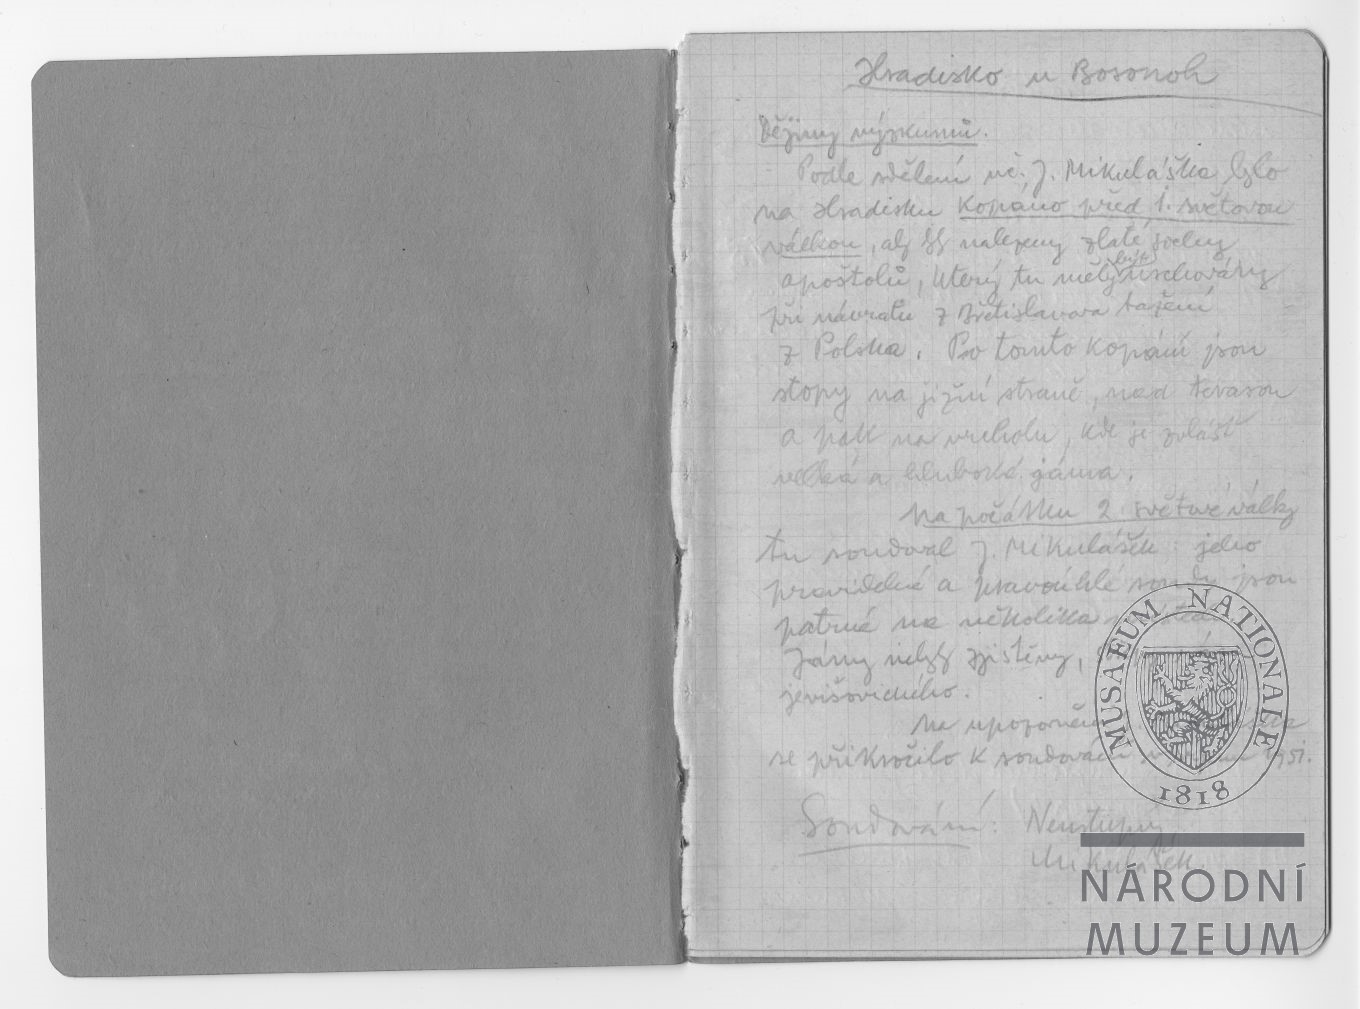 Hradisko u Bosonoh
Dějiny výzkumů.
Podle sdělení uč. J. Mikuláška bylo
na Hradisku kopáno před 1. světovou
válkou, aby byly nalezeny zlaté sochy
apoštolů, který tu měly být uschovány
při návratu z Břetislavova tažení
z Polska. Po tomto kopání jsou
stopy na jižní straně, nad terasou
a pak na vrcholu, kde je zvlášť
velká a hluboká jáma.
Na počátku 2. světové války
tu sondoval J. Mikulášek: jeho
pravidelné a pravoúhlé sondy jsou
patrné na několika
Jámy nebyly zjištěny,
jevišovického.
Na upozornění
se přikročilo k sondování 1951.
Sondování: Neustupný
Mikulášek.
MUSAEUM NATIONALE
1818
NÁRODNÍ
MUZEUM